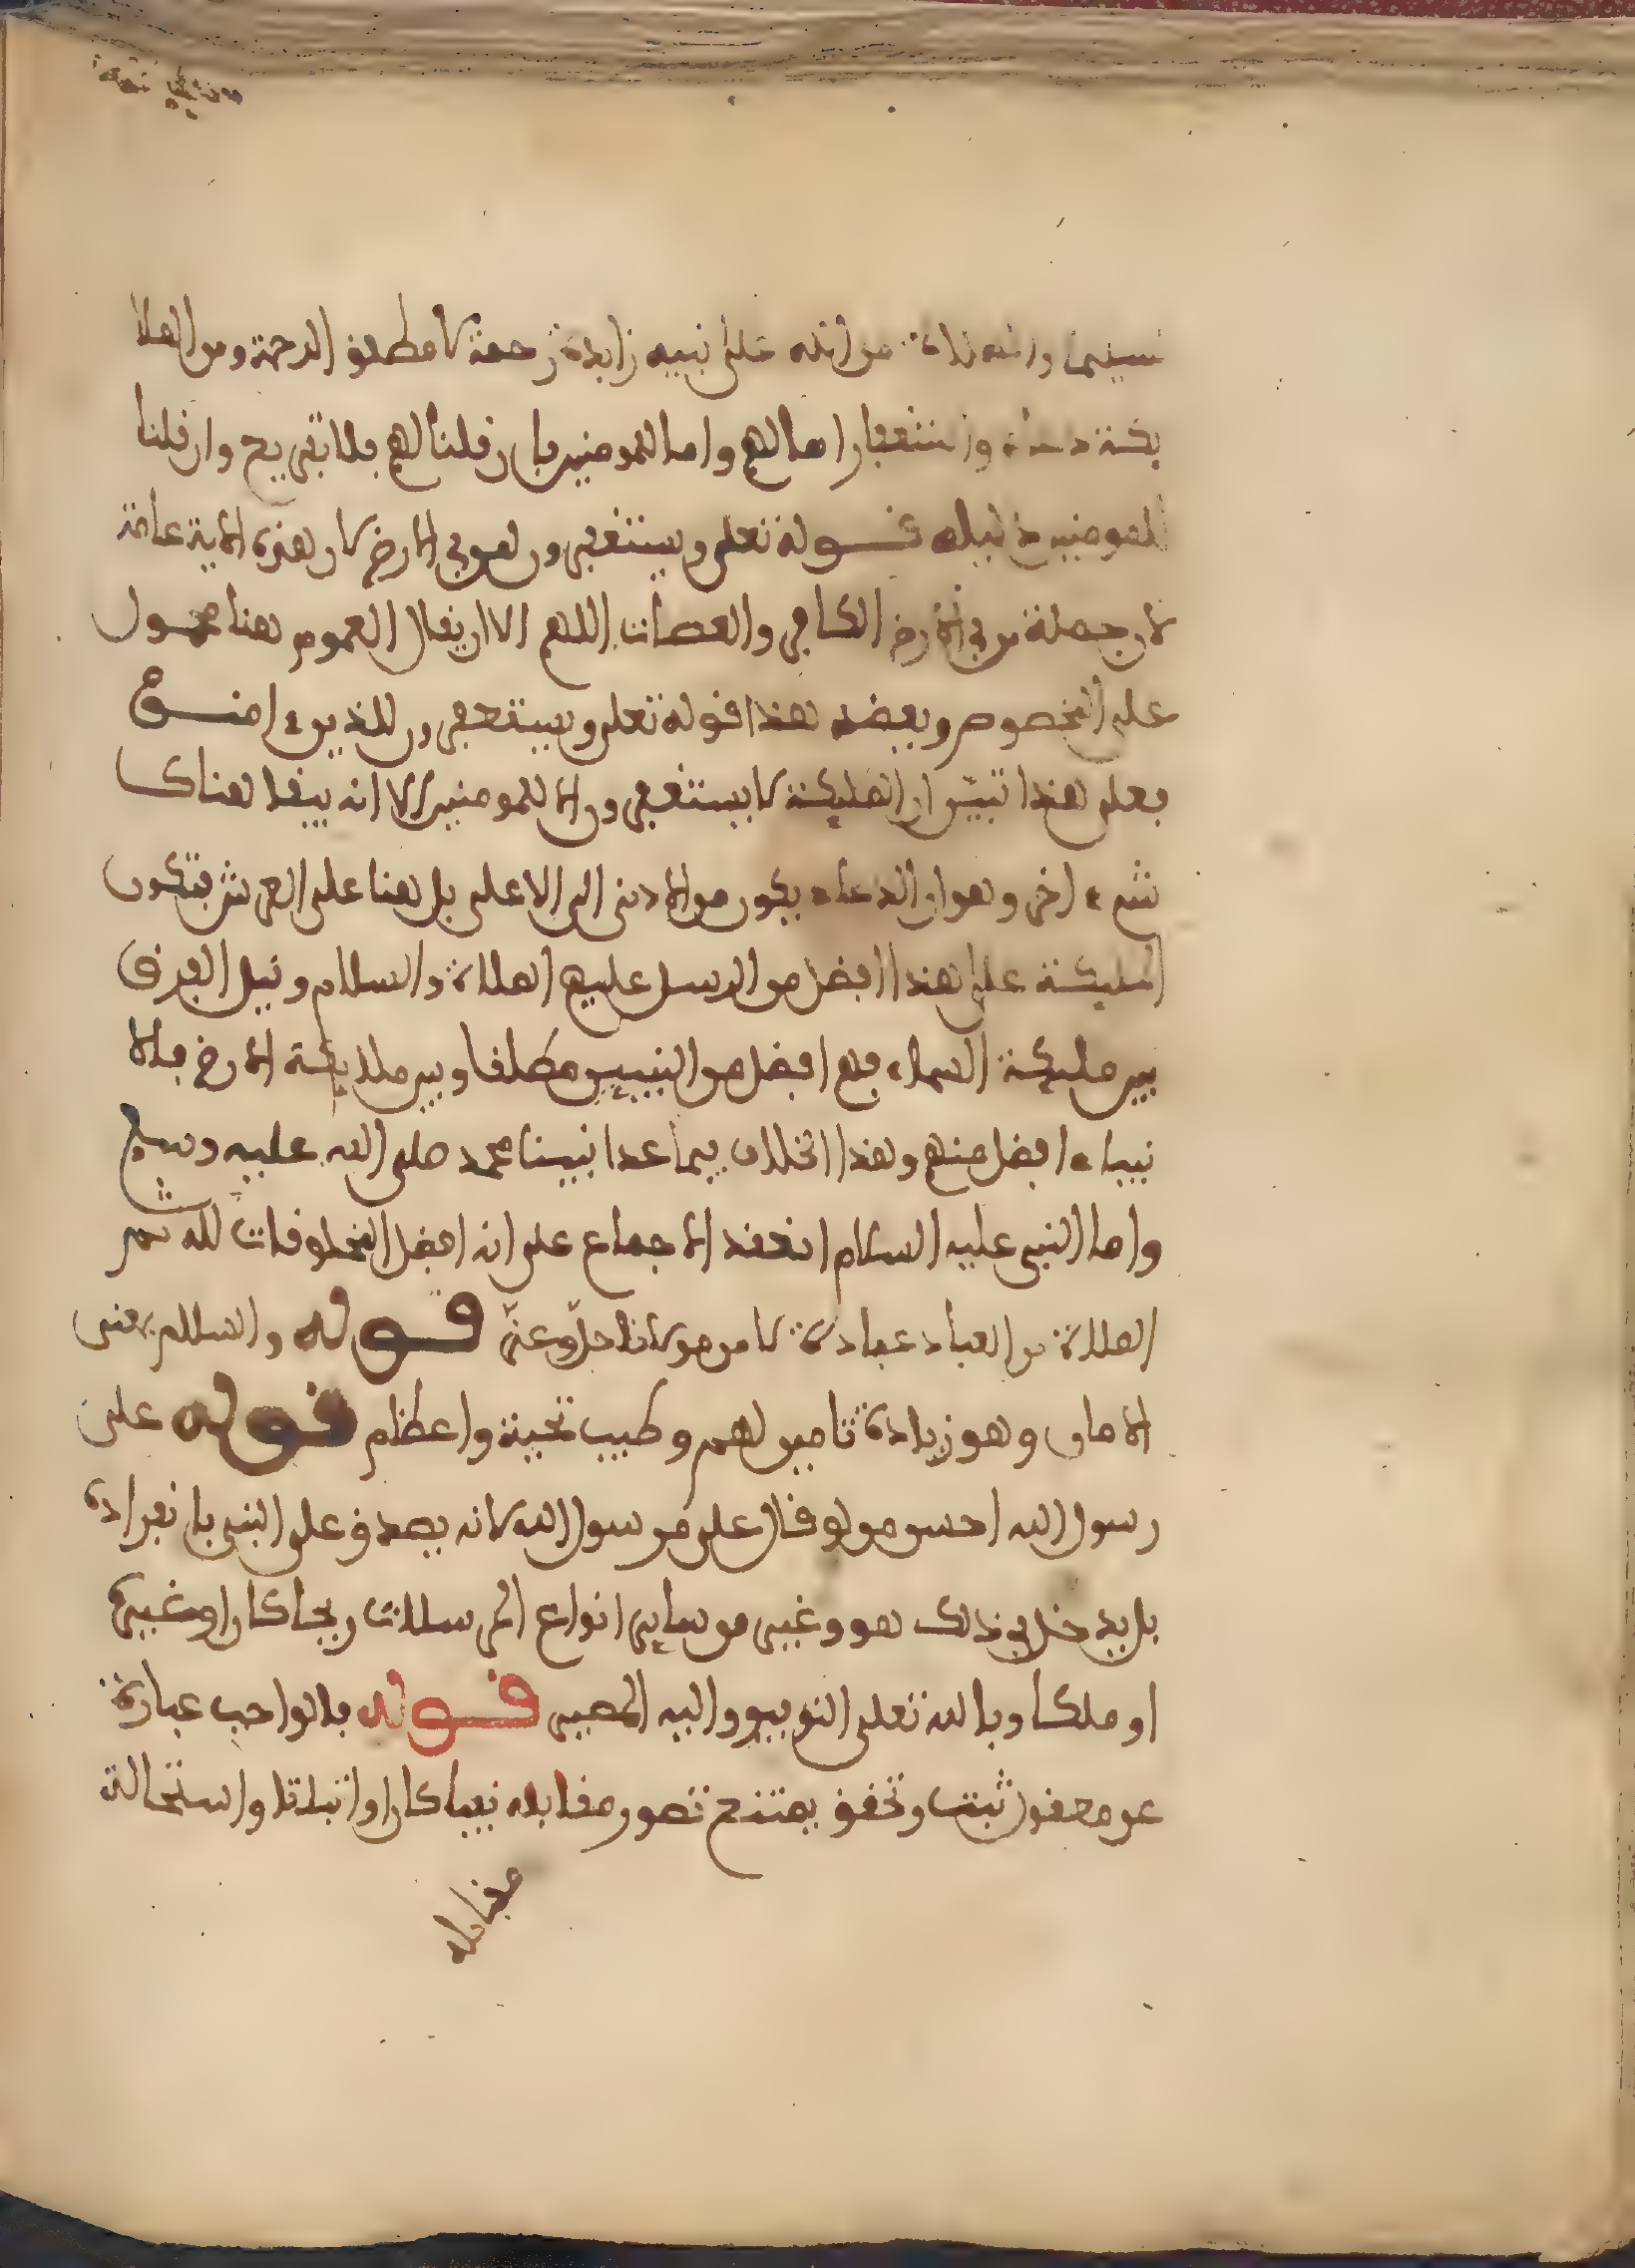 والصلاة من الله على نبيه زايدة رحمة لا مطلق الرحمة ومن الملا
يكة دعاء واستغفار اما لهم واما للمومنين فان قلنا لهم فلا تفريح وان قلنا
للمومنين فدليله قوله تعلى ويستغفرون لمن في الارض لاكن هذه الاية عامة
لان جملة من في الارض الكافر والعصات اللهم الا ان يقال العموم هنا محمول
على الخصوص ويعضد هذا قوله تعلى ويستغفرون للذين ءامنوا
فعلى هذا تبين ان المليكة لا يستغفرون الا للمومنين الا انه يبقا هناك
شيء اخر وهو ان الدعاء يكون من الادنى الى الاعلى بل هنا على العرش فتكون
المليكة على هذا افضل من الرسل عليهم الصلاة والسلام وقيل الفرق
بين مليكة السماء فهم افضل من النبيين مطلقا وبين ملايكة الارض فالا
نبياء افضل منهم وهذا الخلاف فيما عدا نبينا محمد صلى الله عليه وسلم
واما النبي عليه السلام انعقد الاجماع على انه افضل المخلوقات لله ثم
الصلاة من العباد عبادة لامر مولانا جل وعز قوله والسلام يعني
الامان وهو زيادة تامين لهم وطيب تحية واعظام قوله على
رسول الله احسن من لو قال على مرسول الله لانه يصدق على النبي بانفراده
بل يدخل في ذلك هو وغيره من ساير انواع المرسلات ريحا كان او غيره
او ملكا وبالله تعلى التوفيق واليه المصير قوله فالواجب عبارة
عن معقول ثبت وتحقق يمتنع تصور مقابله نفيا كان او اثباتا واستحالة
مقابله